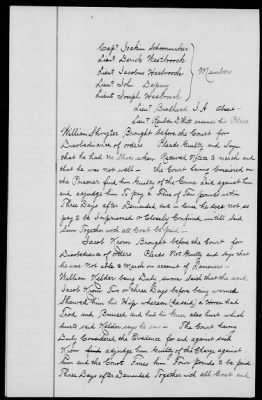 Capt Joakim Schoonmaker
Lieut Derick Westbroock
Lieut Jacobus Hasbroock
Members
Lieut John Depuy
Lieut Joseph Hasbroock
Lieut Brodhead J. A absent
Lieut Reuben DeWitt assumes his Place
William Shryter Brought before the Court for
Disobedience of orders Pleads Guilty and Says
that he had no Shoes when Received Notice to march and
that he was not well — the Court having Considered on
the Prisoner find him Guilty of the Crime Laid against him
and adjudge him To pay a Fine of Ten pounds within
Three Days after Demanded and in Case he does not so
pay to be Imprisoned or Closely Confined untill Said
Sum Together with all Cost be paid —
Jacob Krom Brought before the Court for
Disobedience of orders Pleads Not Guilty and Says that
he was Not able to March on account of Lameness —
William Kelder being Duly Sworn Saith that the said
Jacob Krom Two or Three Days before being warned
Shewed him his Hip whereon (he said) a Horse had
Trod and Bruised and had his knee also hurt which
hurts said Kelder says he saw — The Court having
Duly Considered the Evidence for and against said
Krom adjudge him Guilty of the Charge against
him and the Court Fines him Four pounds to be paid
Three Days after Demanded Together with all Cost and